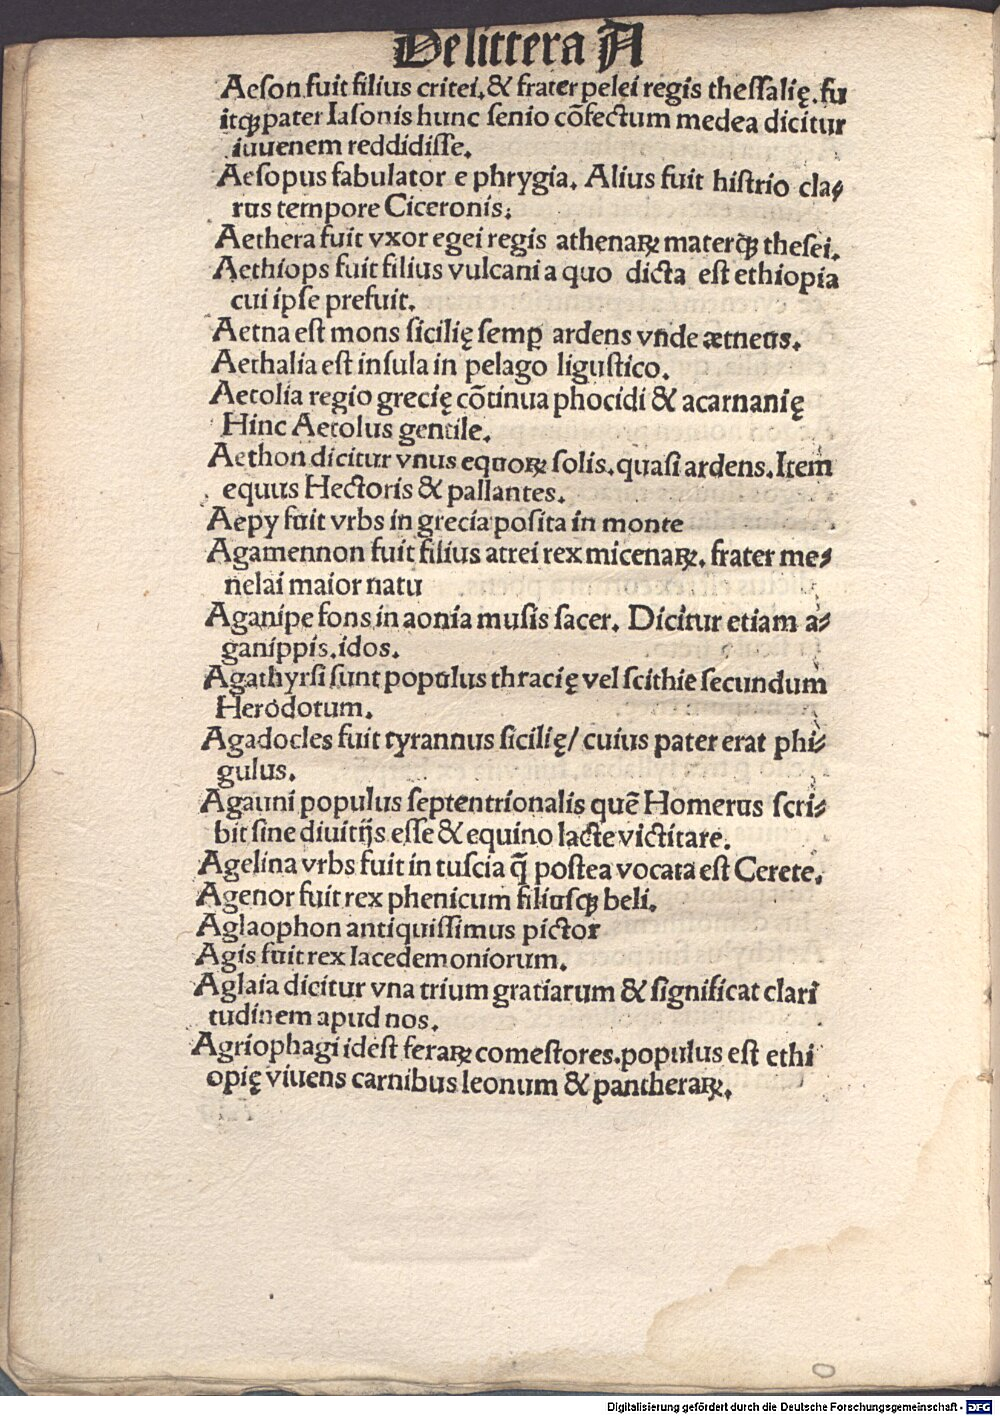 De littera A
Aeson fuit filius critei, & frater pelei regis thessalię. fu
itqꝫ pater Iasonis hunc senio cõfectum medea dicitur
iuuenem reddidisse.
Aesopus fabulator e phrygia. Alius fuit histrio cla⸗
rus tempore Ciceronis:
Aethera fuit vxor egei regis athenaꝝ materqꝫ thesei.
Aethiops fuit filius vulcani a quo dicta est ethiopia
cui ipse prefuit.
Aetna est mons sicilię semꝑ ardens vnde ætneus.
Aethalia est insula in pelago ligustico.
Aetolia regio grecię cõtinua phocidi & acarnanię
Hinc Aetolus gentile.
Aethon dicitur vnus equoꝝ solis. quasi ardens. Item
equus Hectoris & pallantes.
Aepy fuit vrbs in grecia posita in monte
Agamennon fuit filius atrei rex micenaꝝ. frater me⸗
nelai maior natu
Aganipe fons in aonia musis sacer. Dicitur etiam a⸗
ganippis. idos.
Agathyrsi sunt populus thracię vel scithie secundum
Herodotum.
Agadocles fuit tyrannus sicilię/ cuius pater erat phi⸗
gulus.
Agauni populus septentrionalis quẽ Homerus scri⸗
bit sine diuitijs esse & equino lacte victitare.
Agelina vrbs fuit in tuscia q̃ postea vocata est Cerete.
Agenor fuit rex phenicum filiusqꝫ beli.
Aglaophon antiquissimus pictor
Agis fuit rex lacedemoniorum.
Aglaia dicitur vna trium gratiarum & significat clari
tudinem apud nos.
Agriophagi idest feraꝝ comestores. populus est ethi
opię viuens carnibus leonum & pantheraꝝ.
Digitalisierung gefördert durch die Deutsche Forschungsgemeinschaft - DFG